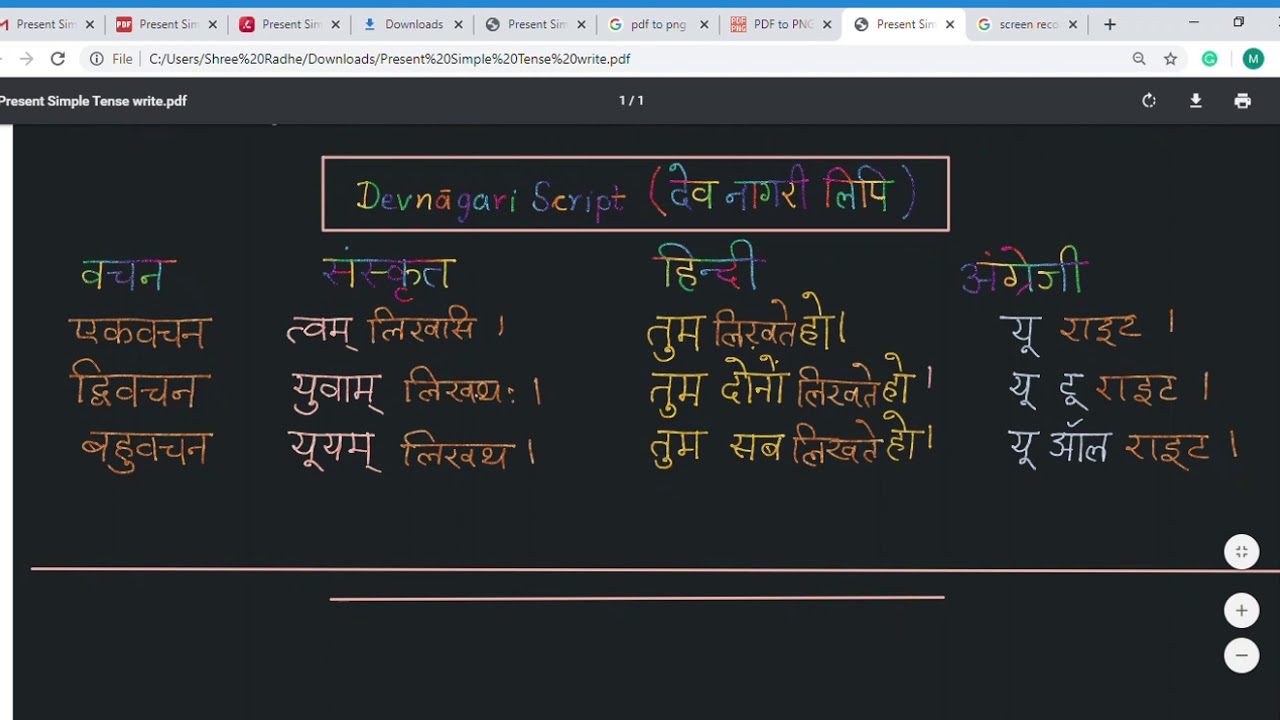 Present Sim
Present Sim
Present Sim
Downloads
Present Sim
pdf to png
PDF to PNG
Present Sim
screen reco
File C:/Users/Shree%20Radhe/Downloads/Present%20Simple%20Tense%20write.pdf
M
Present Simple Tense write.pdf
1 / 1
Devnāgari Script (देव नागरी लिपि)
वचन संस्कृत हिन्दी अंग्रेजी
एकवचन त्वम् लिखसि । तुम लिख़ते हो। यू राइट ।
द्विवचन युवाम् लिखथः । तुम दोनों लिखते हो । यू टू राइट ।
बहुवचन यूयम् लिखथ । तुम सब लिखते हो। यू ऑल राइट ।